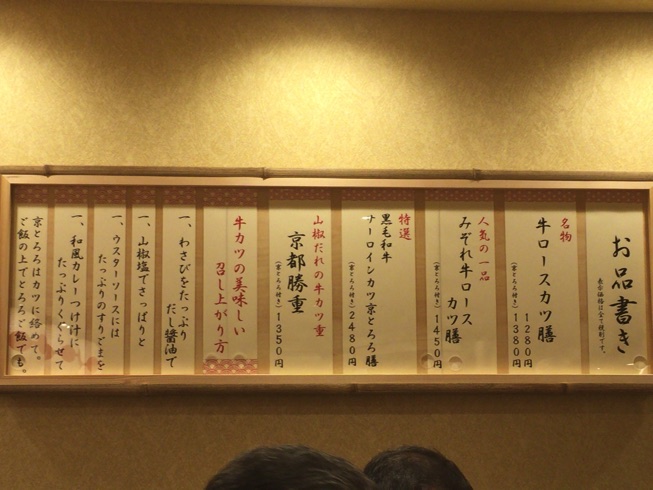 お品書き
表示価格は全て税別です。
名物
牛ロースカツ膳
1280円
(京とろろ付き)1380円
人気の一品
みぞれ牛ロース
カツ膳
(京とろろ付き)1450円
特選
黒毛和牛
サーロインカツ京とろろ膳
(京とろろ付き)2480円
山椒だれの牛カツ重
京都勝重
(京とろろ付き)1350円
牛カツの美味しい
召し上がり方
一、わさびをたっぷり
だし醤油で
一、山椒塩でさっぱりと
一、ウスターソースには
たっぷりのすりごまを
一、和風カレーつけ汁に
たっぷりくぐらせて
京とろろはカツに絡めて。
ご飯の上でとろろご飯でも。